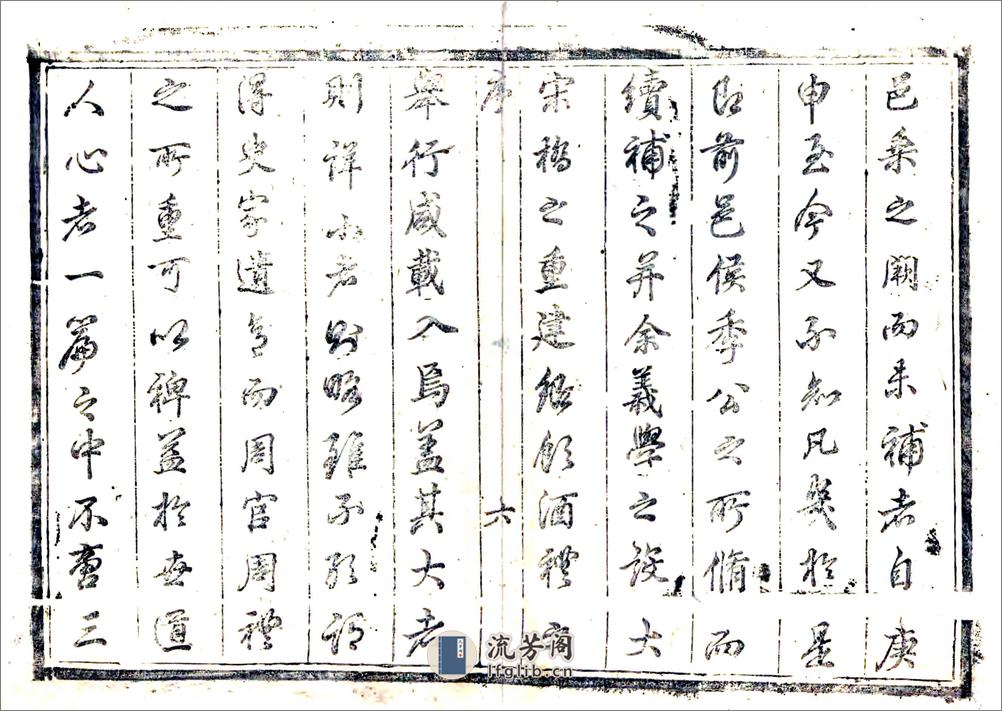 邑乘之闕而未補者自庚
申至今又不知凡幾於是
即前邑侯季公之所脩而
續補之并余義學之設大
宋橋之重建鄉飲酒禮之
序
六
舉行咸載入焉蓋其大者
則詳小者則略雖不敢謂
得史家遺意而周官周禮
之所重可以裨益於世道
人心者一篇之中不啻三
流芳阁
lfglib.cn